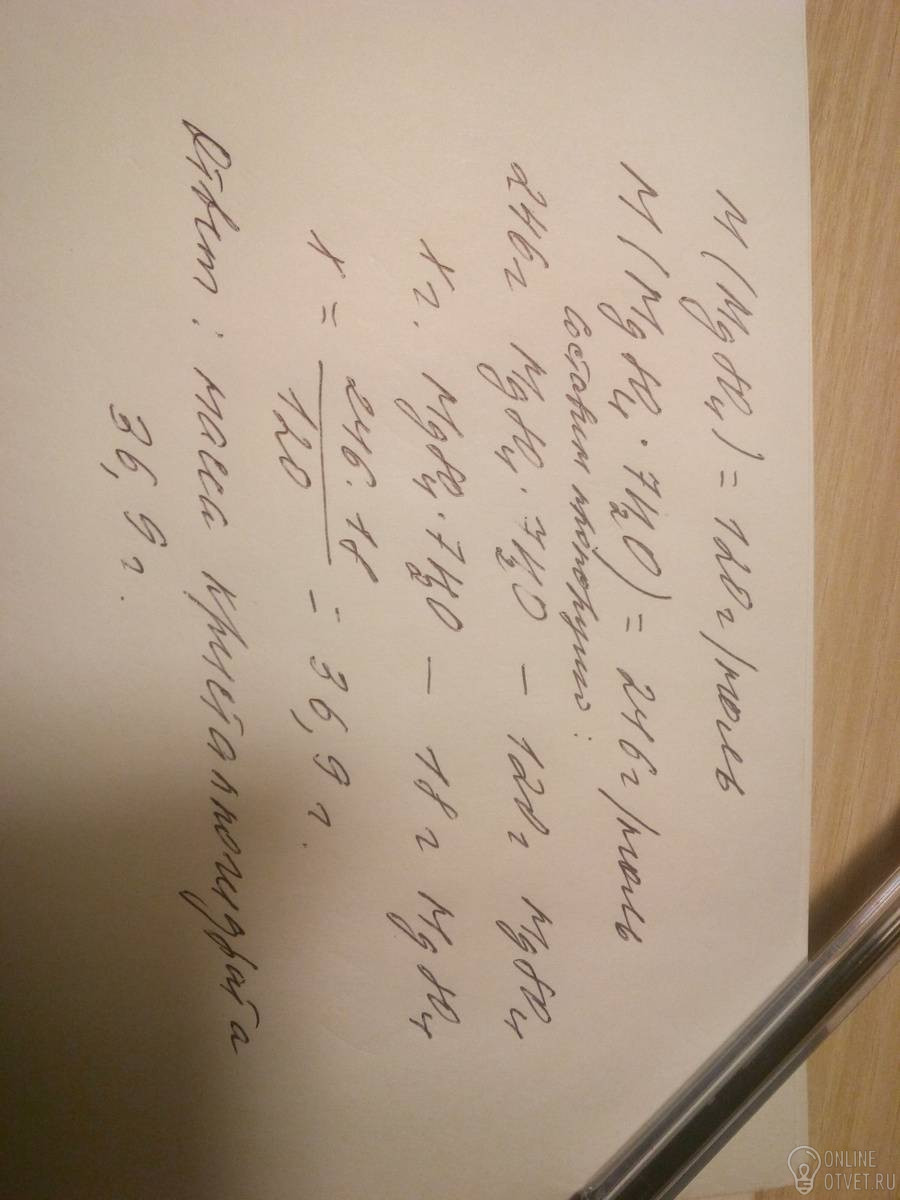 M(MgSO₄) = 120 г/моль
M(MgSO₄·7H₂O) = 246 г/моль
Составим пропорцию:
246г MgSO₄·7H₂O – 120г MgSO₄
x г. MgSO₄·7H₂O – 18г MgSO₄
x = 246·18 / 120 = 36,9 г.
Ответ: масса кристаллогидрата
36,9 г.
ONLINE
OTVET.RU